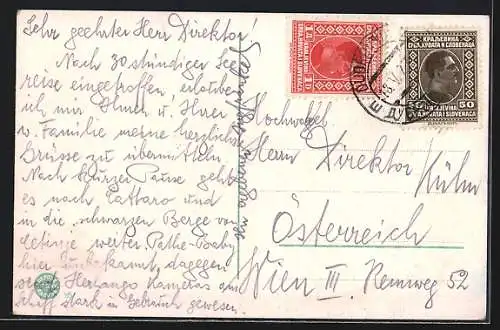 Sehr geehrter Herr Direktor!
Nach 30 stündiger See
reise eingetroffen, erlaube
ich mir, Ihnen u. Ihrer
w. Familie meine herzlichste
Grüsse zu übermitteln.
Nach kurzer Pause geht
es nach Cattaro und
in die schwarzen Berge von
Cetinje weiter. Pathe-Baby
hier unbekannt, dagegen
Kameras am
Schiff stark in Gebrauch gewesen.
Hochwohlgeb.
Herrn Direktor Kühn
Österreich
Wien III. Rennweg 52
КРАЉЕВИНА
СРБА, ХРВАТА И СЛОВЕНАЦА
50 50
KRALJEVINA
SRBA, HRVATA I SLOVENACA
1